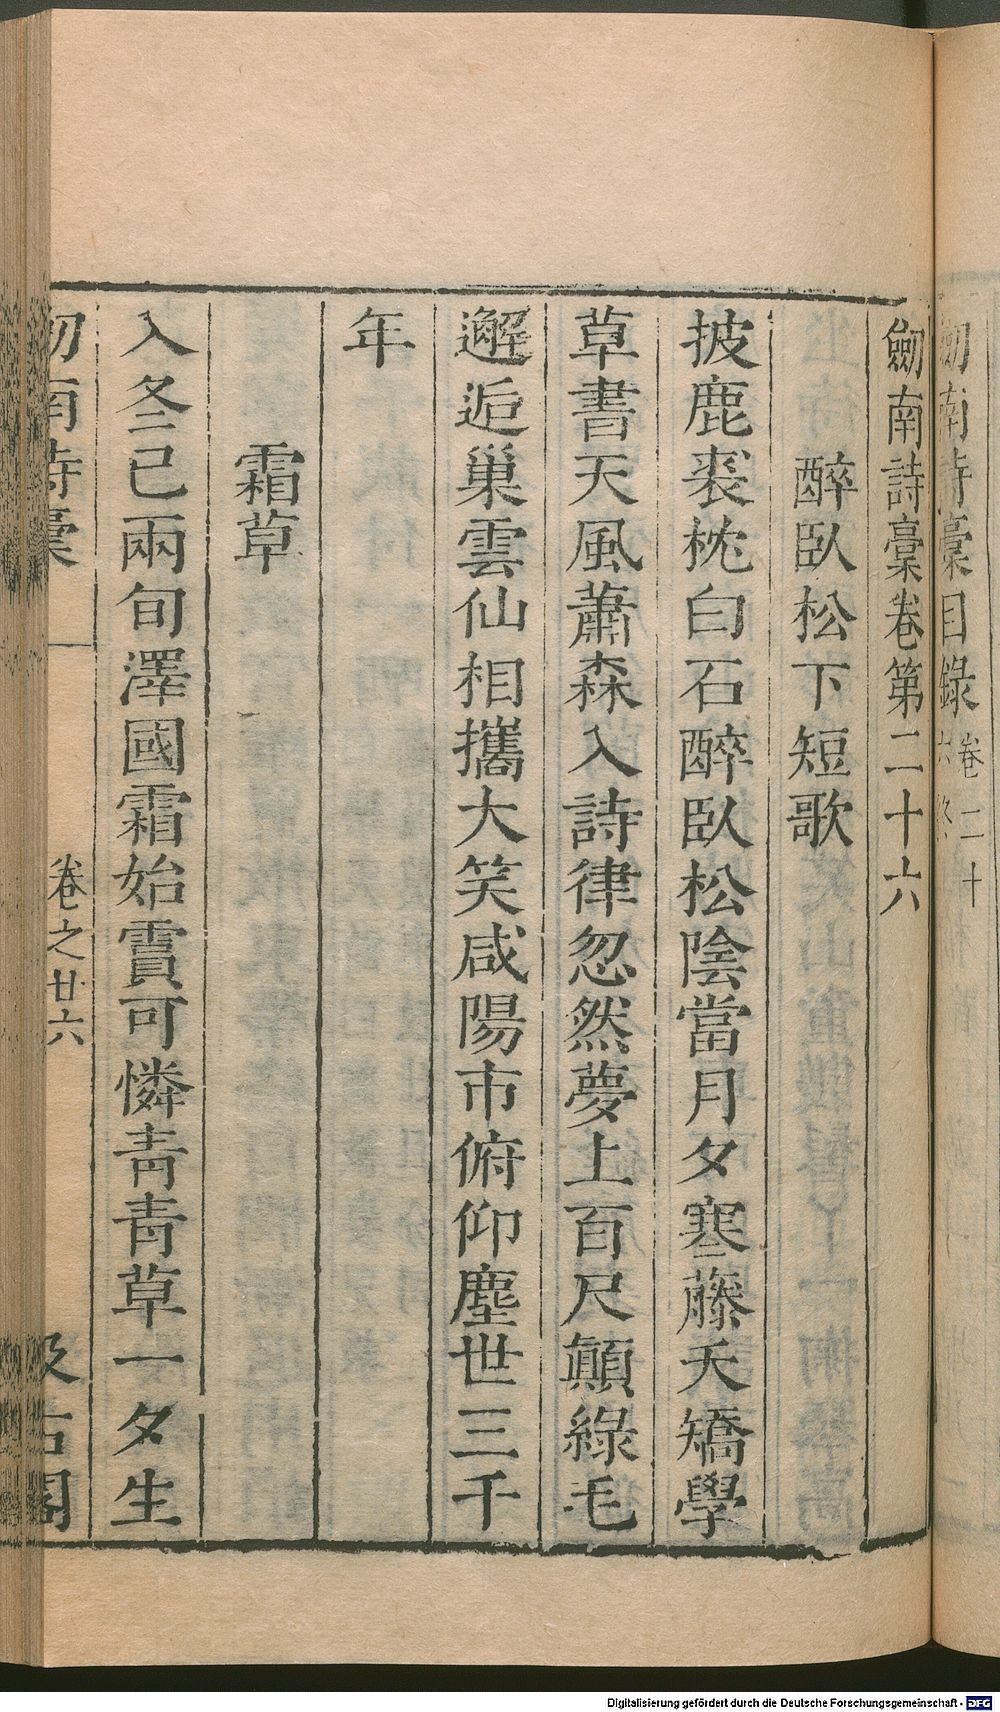 劒南詩稾目錄 卷二十六終
劒南詩稾卷第二十六
醉臥松下短歌
披鹿裘枕白石醉臥松陰當月夕寒藤夭矯學
草書天風蕭森入詩律忽然夢上百尺顛綠毛
邂逅巢雲仙相攜大笑咸陽市俯仰塵世三千
年
霜草
入冬已兩旬澤國霜始霣可憐靑靑草一夕生
劒南詩稾 卷之廿六 汲古閣
Digitalisierung gefördert durch die Deutsche Forschungsgemeinschaft - DFG